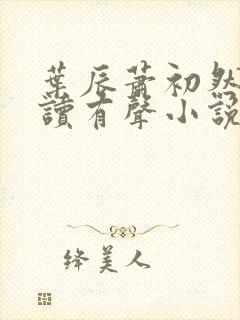 葉辰蕭初然
讀有聲小說
絳美人